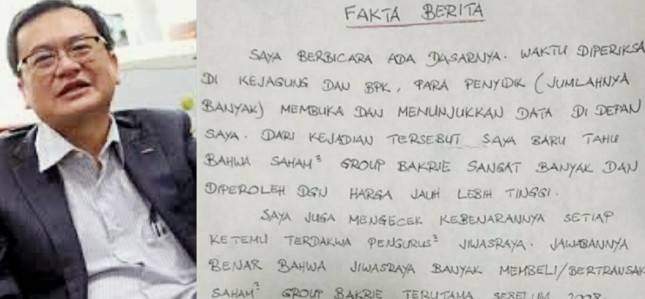 FAKTA BERITA
SAYA BERBICARA ADA DASARNYA. WAKTU DIPERIKSA
DI KEJAGUNG DAN BPK, PARA PENYIDIK (JUMLAHNYA
BANYAK) MEMBUKA DAN MENUNJUKKAN DATA DI DEPAN
SAYA. DARI KEJADIAN TERSEBUT SAYA BARU TAHU
BAHWA SAHAM² GROUP BAKRIE SANGAT BANYAK DAN
DIPEROLEH DGN HARGA JAUH LEBIH TINGGI.
SAYA JUGA MENGECEK KEBENARANNYA SETIAP
KETEMU TERDAKWA PENGURUS² JIWASRAYA. JAWABANNYA
BENAR BAHWA JIWASRAYA BANYAK MEMBELI/BERTRANSAK
SAHAM² GROUP BAKRIE TERUTAMA SEBELUM 2008